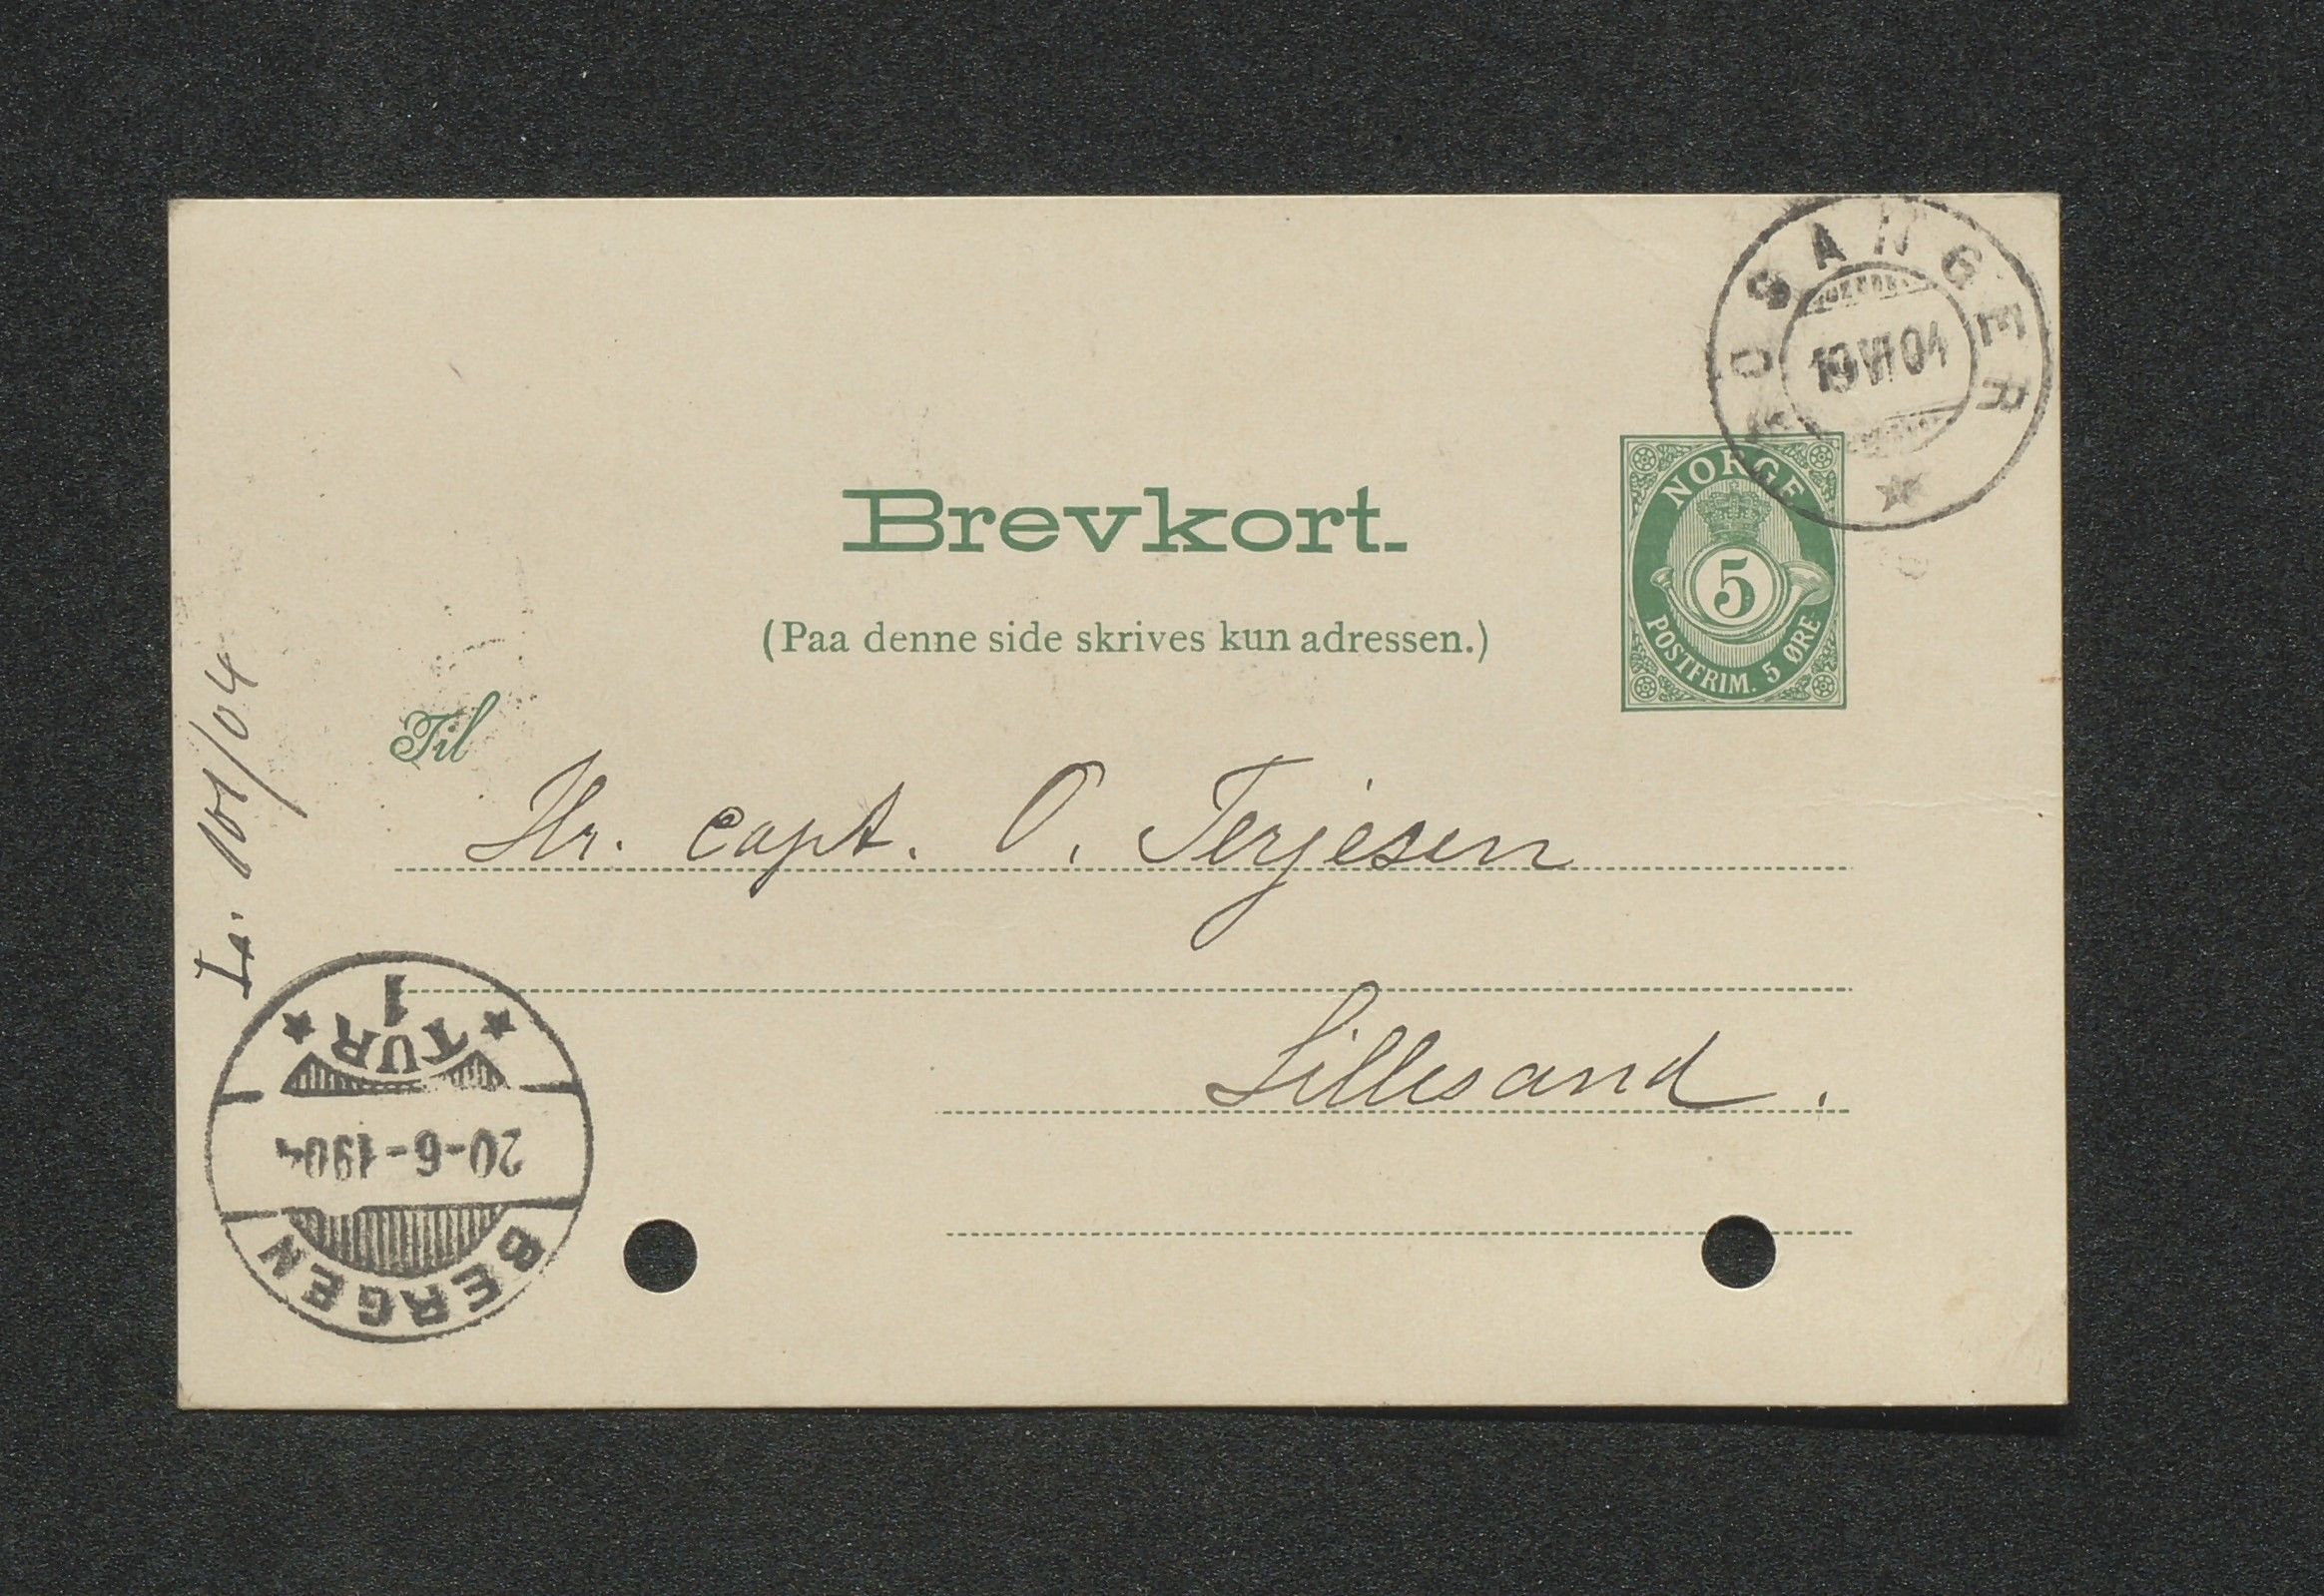 FOSANGER
19 VI 04
Brevkort.
(Paa denne side skrives kun adressen.)
NORGE
5
POSTFRIM. 5 ØRE
Til
Hr. Capt. O. Terjesen
Lillesand.
101/04
BERGEN
20-6-1904
TUR
1